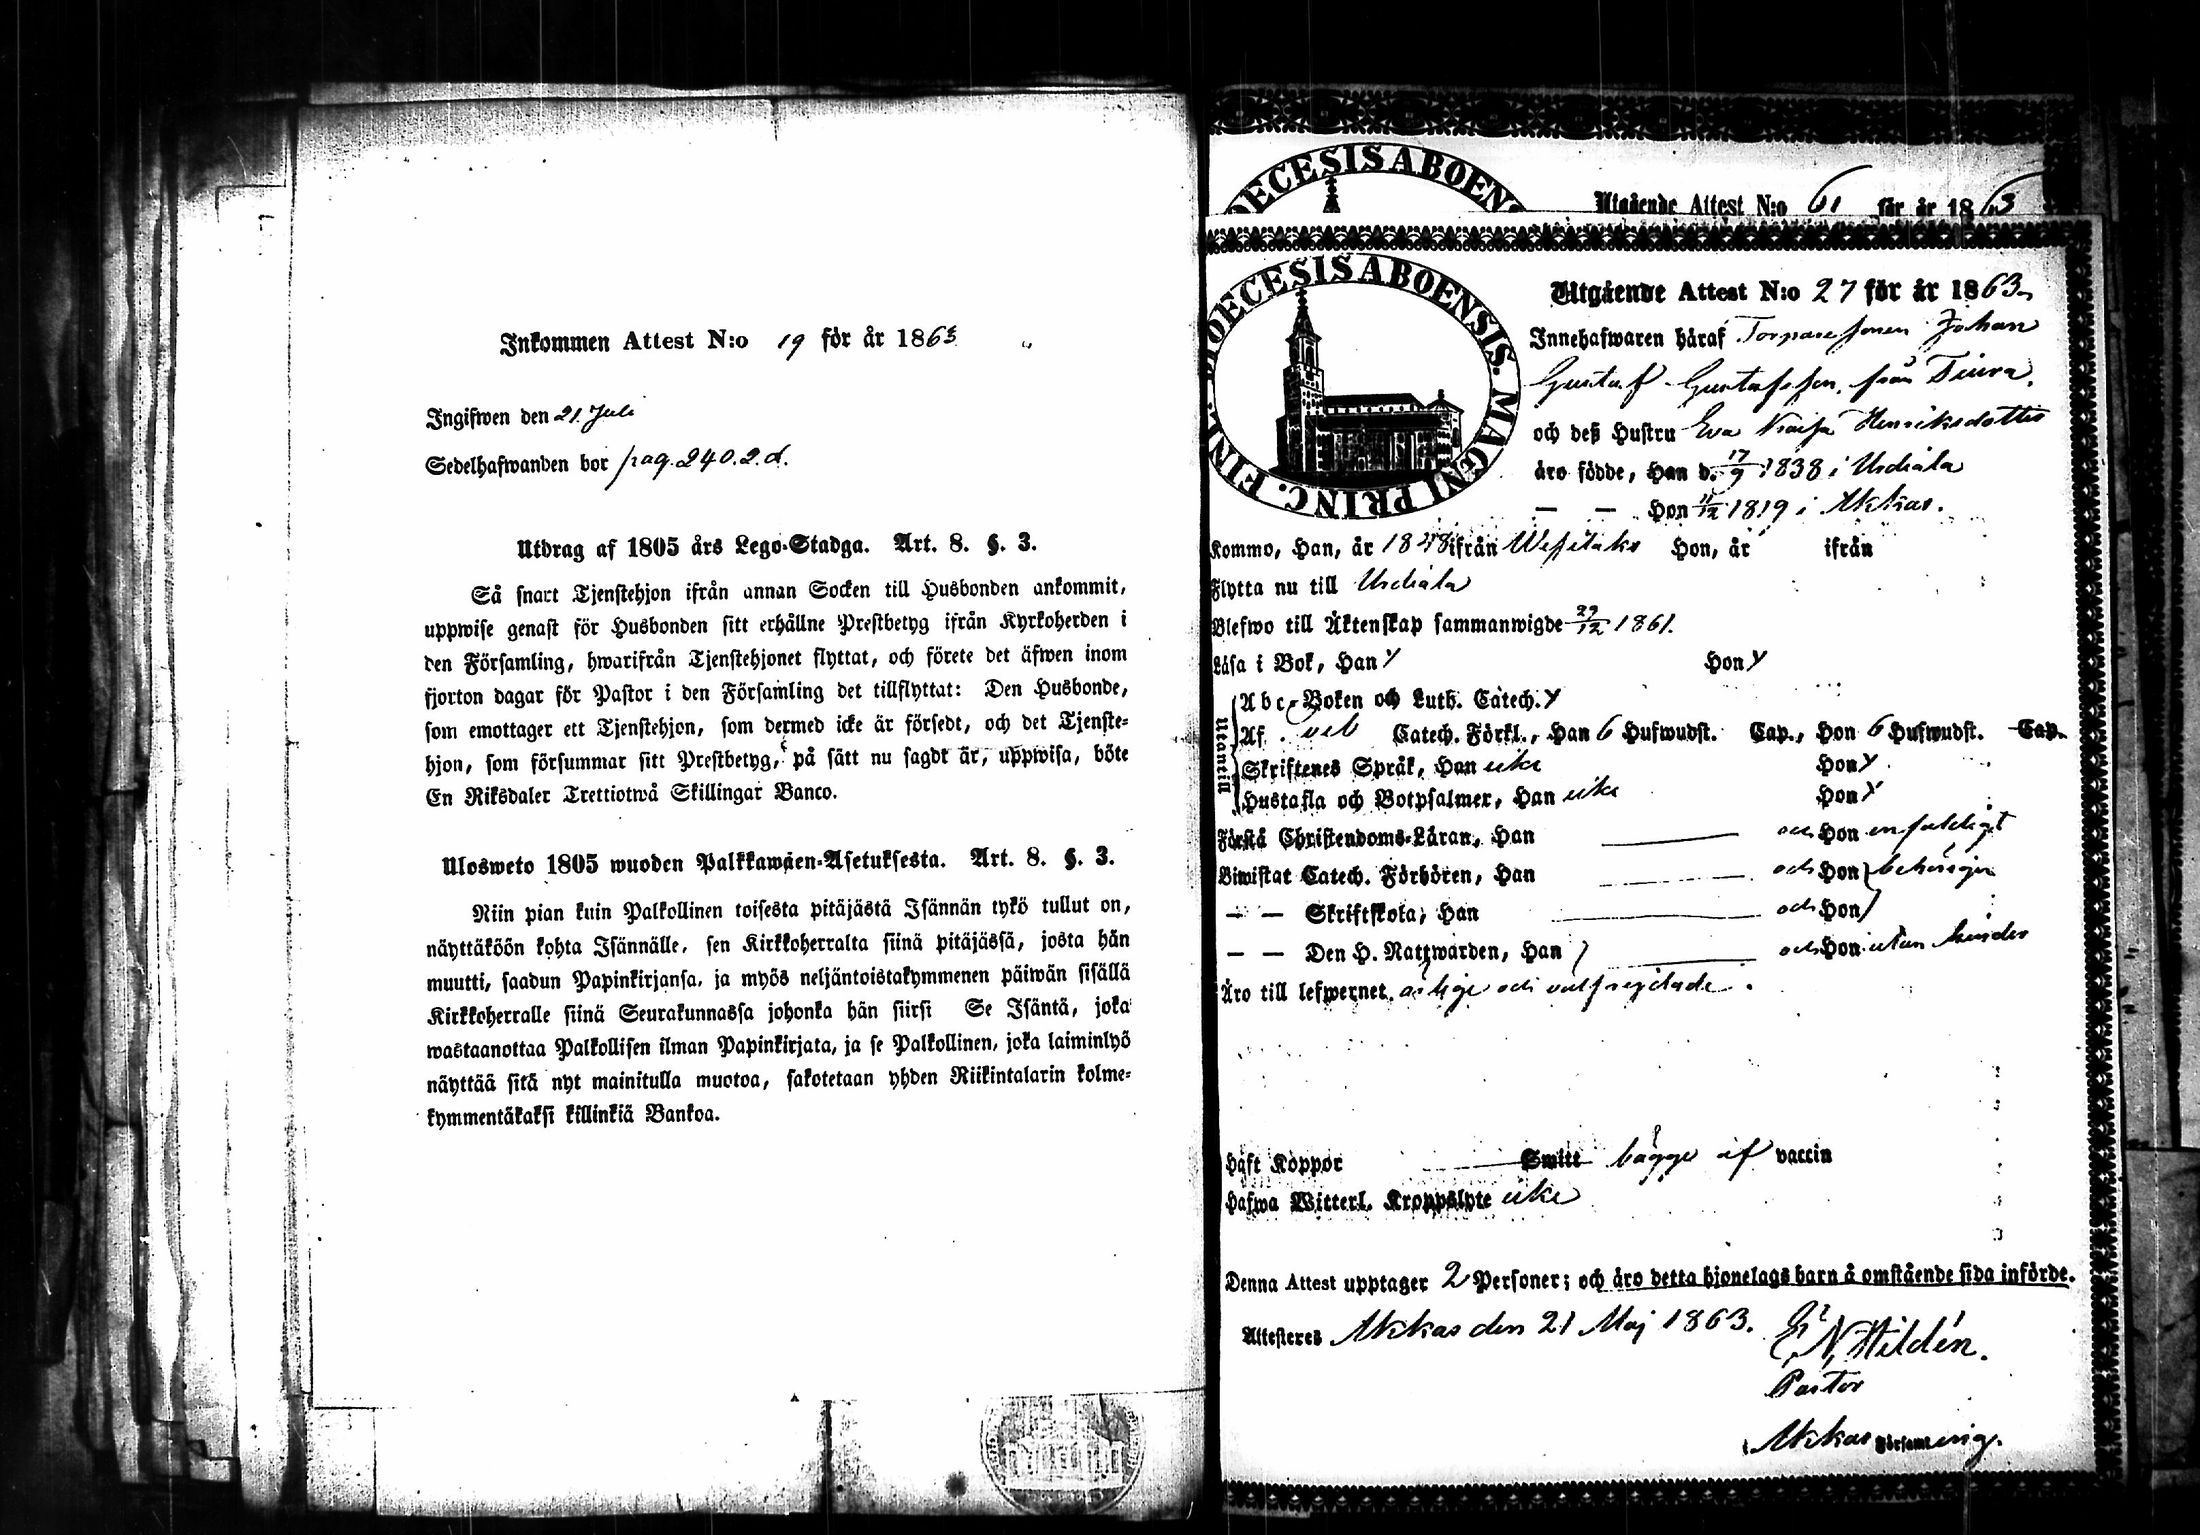 Inkommen Attest N:o 19 för år 1863
Ingifwen den 21 Juli
Sedelhafwanden bor pag. 240. 2. d.
Utdrag af 1805 års Lego-Stadga. Art. 8. §. 3.
Så snart Tjenstehjon ifrån annan Socken till Husbonden ankommit,
uppwise genast för Husbonden sitt erhållne Prestbetyg ifrån Kyrkoherden i
den Församling, hwarifrån Tjenstehjonet flyttat, och förete det äfwen inom
fjorton dagar för Pastor i den Församling det tillflyttat: Den Husbonde,
som emottager ett Tjenstehjon, som dermed icke är försedt, och det Tjenste-
hjon, som försummar sitt Prestbetyg, på sätt nu sagdt är, uppwisa, böte
En Riksdaler Trettiotwå Skillingar Banco.
Ulosweto 1805 wuoden Palkkawäen-Asetuksesta. Art. 8. §. 3.
Niin pian kuin Palkollinen toisesta pitäjästä Isännän tykö tullut on,
näyttäköön kohta Isännälle, sen Kirkkoherralta siinä pitäjässä, josta hän
muutti, saadun Papinkirjansa, ja myös neljäntoistakymmenen päiwän sisällä
Kirkkoherralle siinä Seurakunnassa johonka hän siirsi Se Isäntä, joka
wastaanottaa Palkollisen ilman Papinkirjata, ja se Palkollinen, joka laiminlyö
näyttää sitä nyt mainitulla muotoa, sakotetaan yhden Riikintalarin kolme-
kymmentäkaksi killinkiä Bankoa.
DIOECESIS ABOEN
Utgående Attest N:o 61 för år 1863
DIOECESIS ABOENSIS. MAGNI PRINC. FINL.
Utgående Attest N:o 27 för år 1863
Innehafwaren häraf Torparesonen Johan
Gustaf Gustafsson, från Tiura.
och deß Hustru Eva Kaisa Henriksdotter
äro födde, Han d. 17/9 1838 i Urdiala
— — Hon 11/12 1819 i Akkas.
Kommo, Han, år 1848 ifrån Wesilaks Hon, år ifrån
Flytta nu till Urdiala
Blefwo till Äktenskap sammanwigde 29/12 1861.
Läsa i Bok, Han Hon
Utantill
Abc-Boken och Luth. Catech.
Af Catech. Förkl., Han 6 Hufwudst. Cap., Hon 6 Hufwudst. Cap.
Skriftenes Språk, Han icke Hon
Hustafla och Botpsalmer, Han icke Hon
Förstå Christendoms-Läran, Han och Hon enfaldigt
Biwistat Catech. Förhören, Han och Hon behörigen
— — Skriftskola, Han och Hon
— — Den H. Nattwarden, Han och Hon utan hinder
Äro till lefwernet ärlige och välfrejdade.
Haft Koppor Smitt bägge af vaccin
Hafwa Witterl. Kroppslyte icke
Denna Attest upptager 2 Personer; och äro detta hjonelags barn å omstående sida införde.
Attesteres Akkas den 21 Maj 1863.
E. N. Hildén.
Pastor
i Akkas Församling.